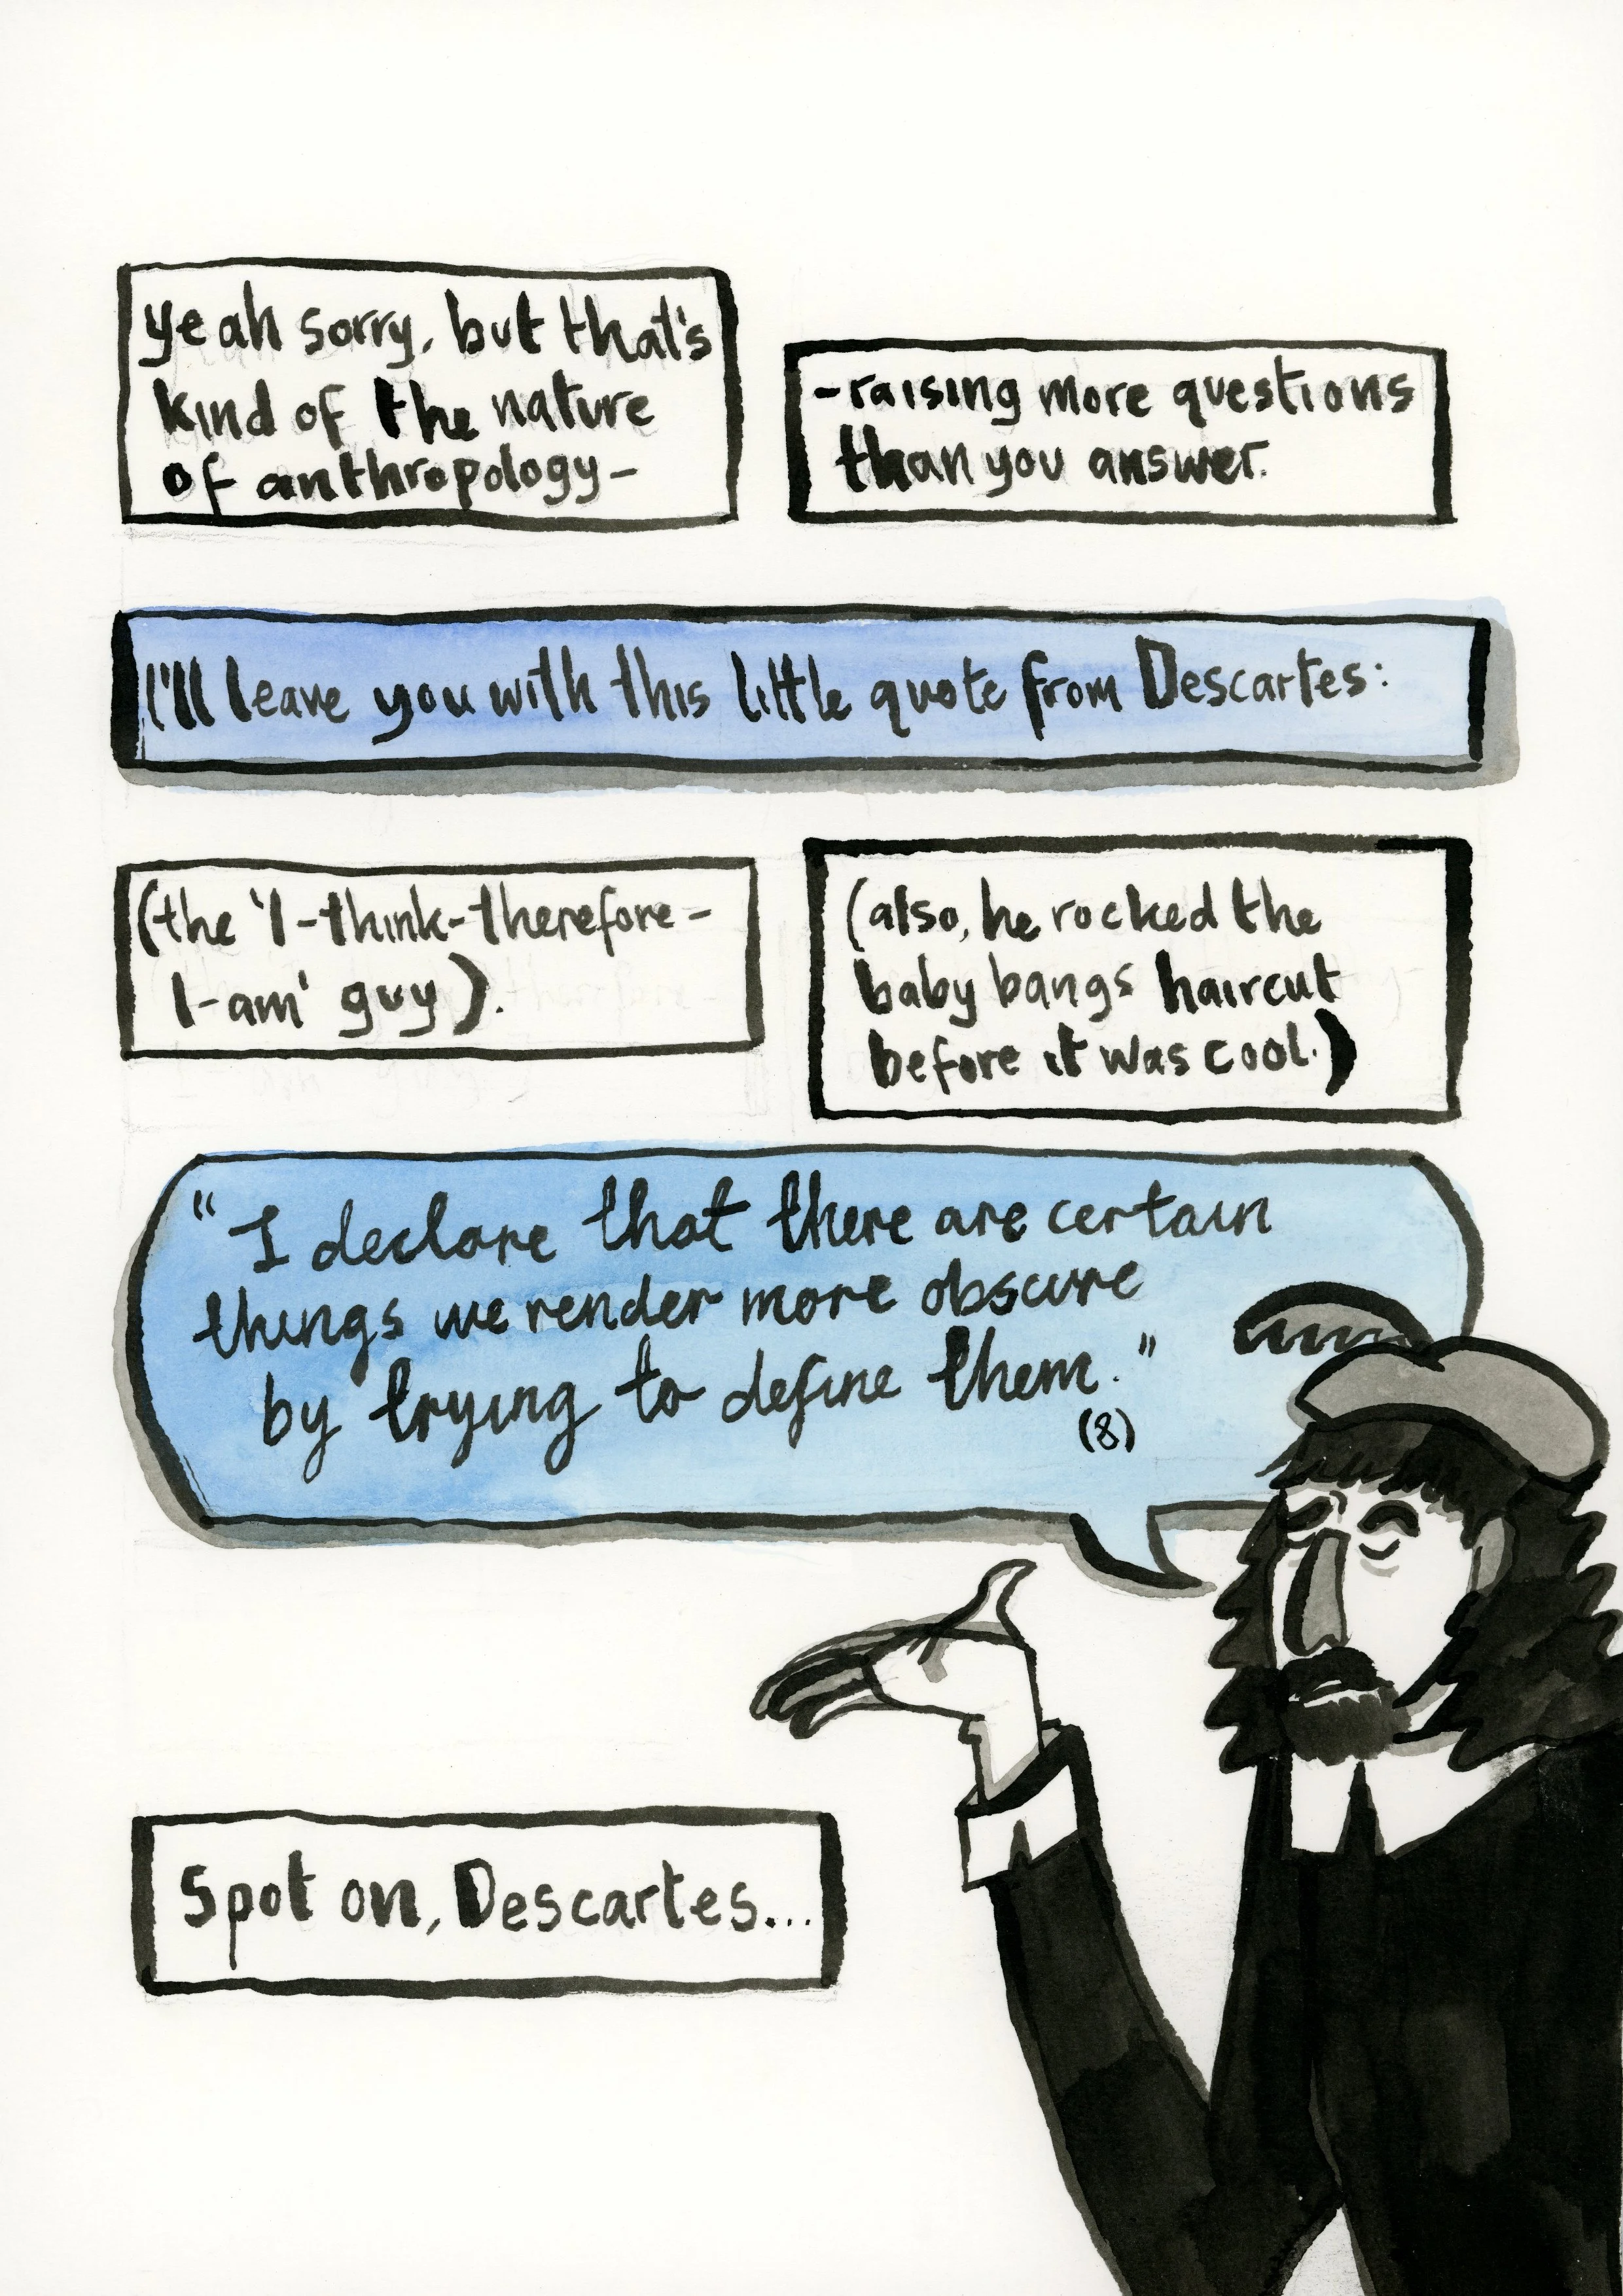 yeah sorry, but that's
kind of the nature
of anthropology-
-raising more questions
than you answer.
I'll leave you with this little quote from Descartes:
(the 'I-think-therefore-
I-am' guy).
(also, he rocked the
baby bangs haircut
before it was cool.)
"I declare that there are certain
things we render more obscure
by trying to define them."
(8)
Spot on, Descartes...